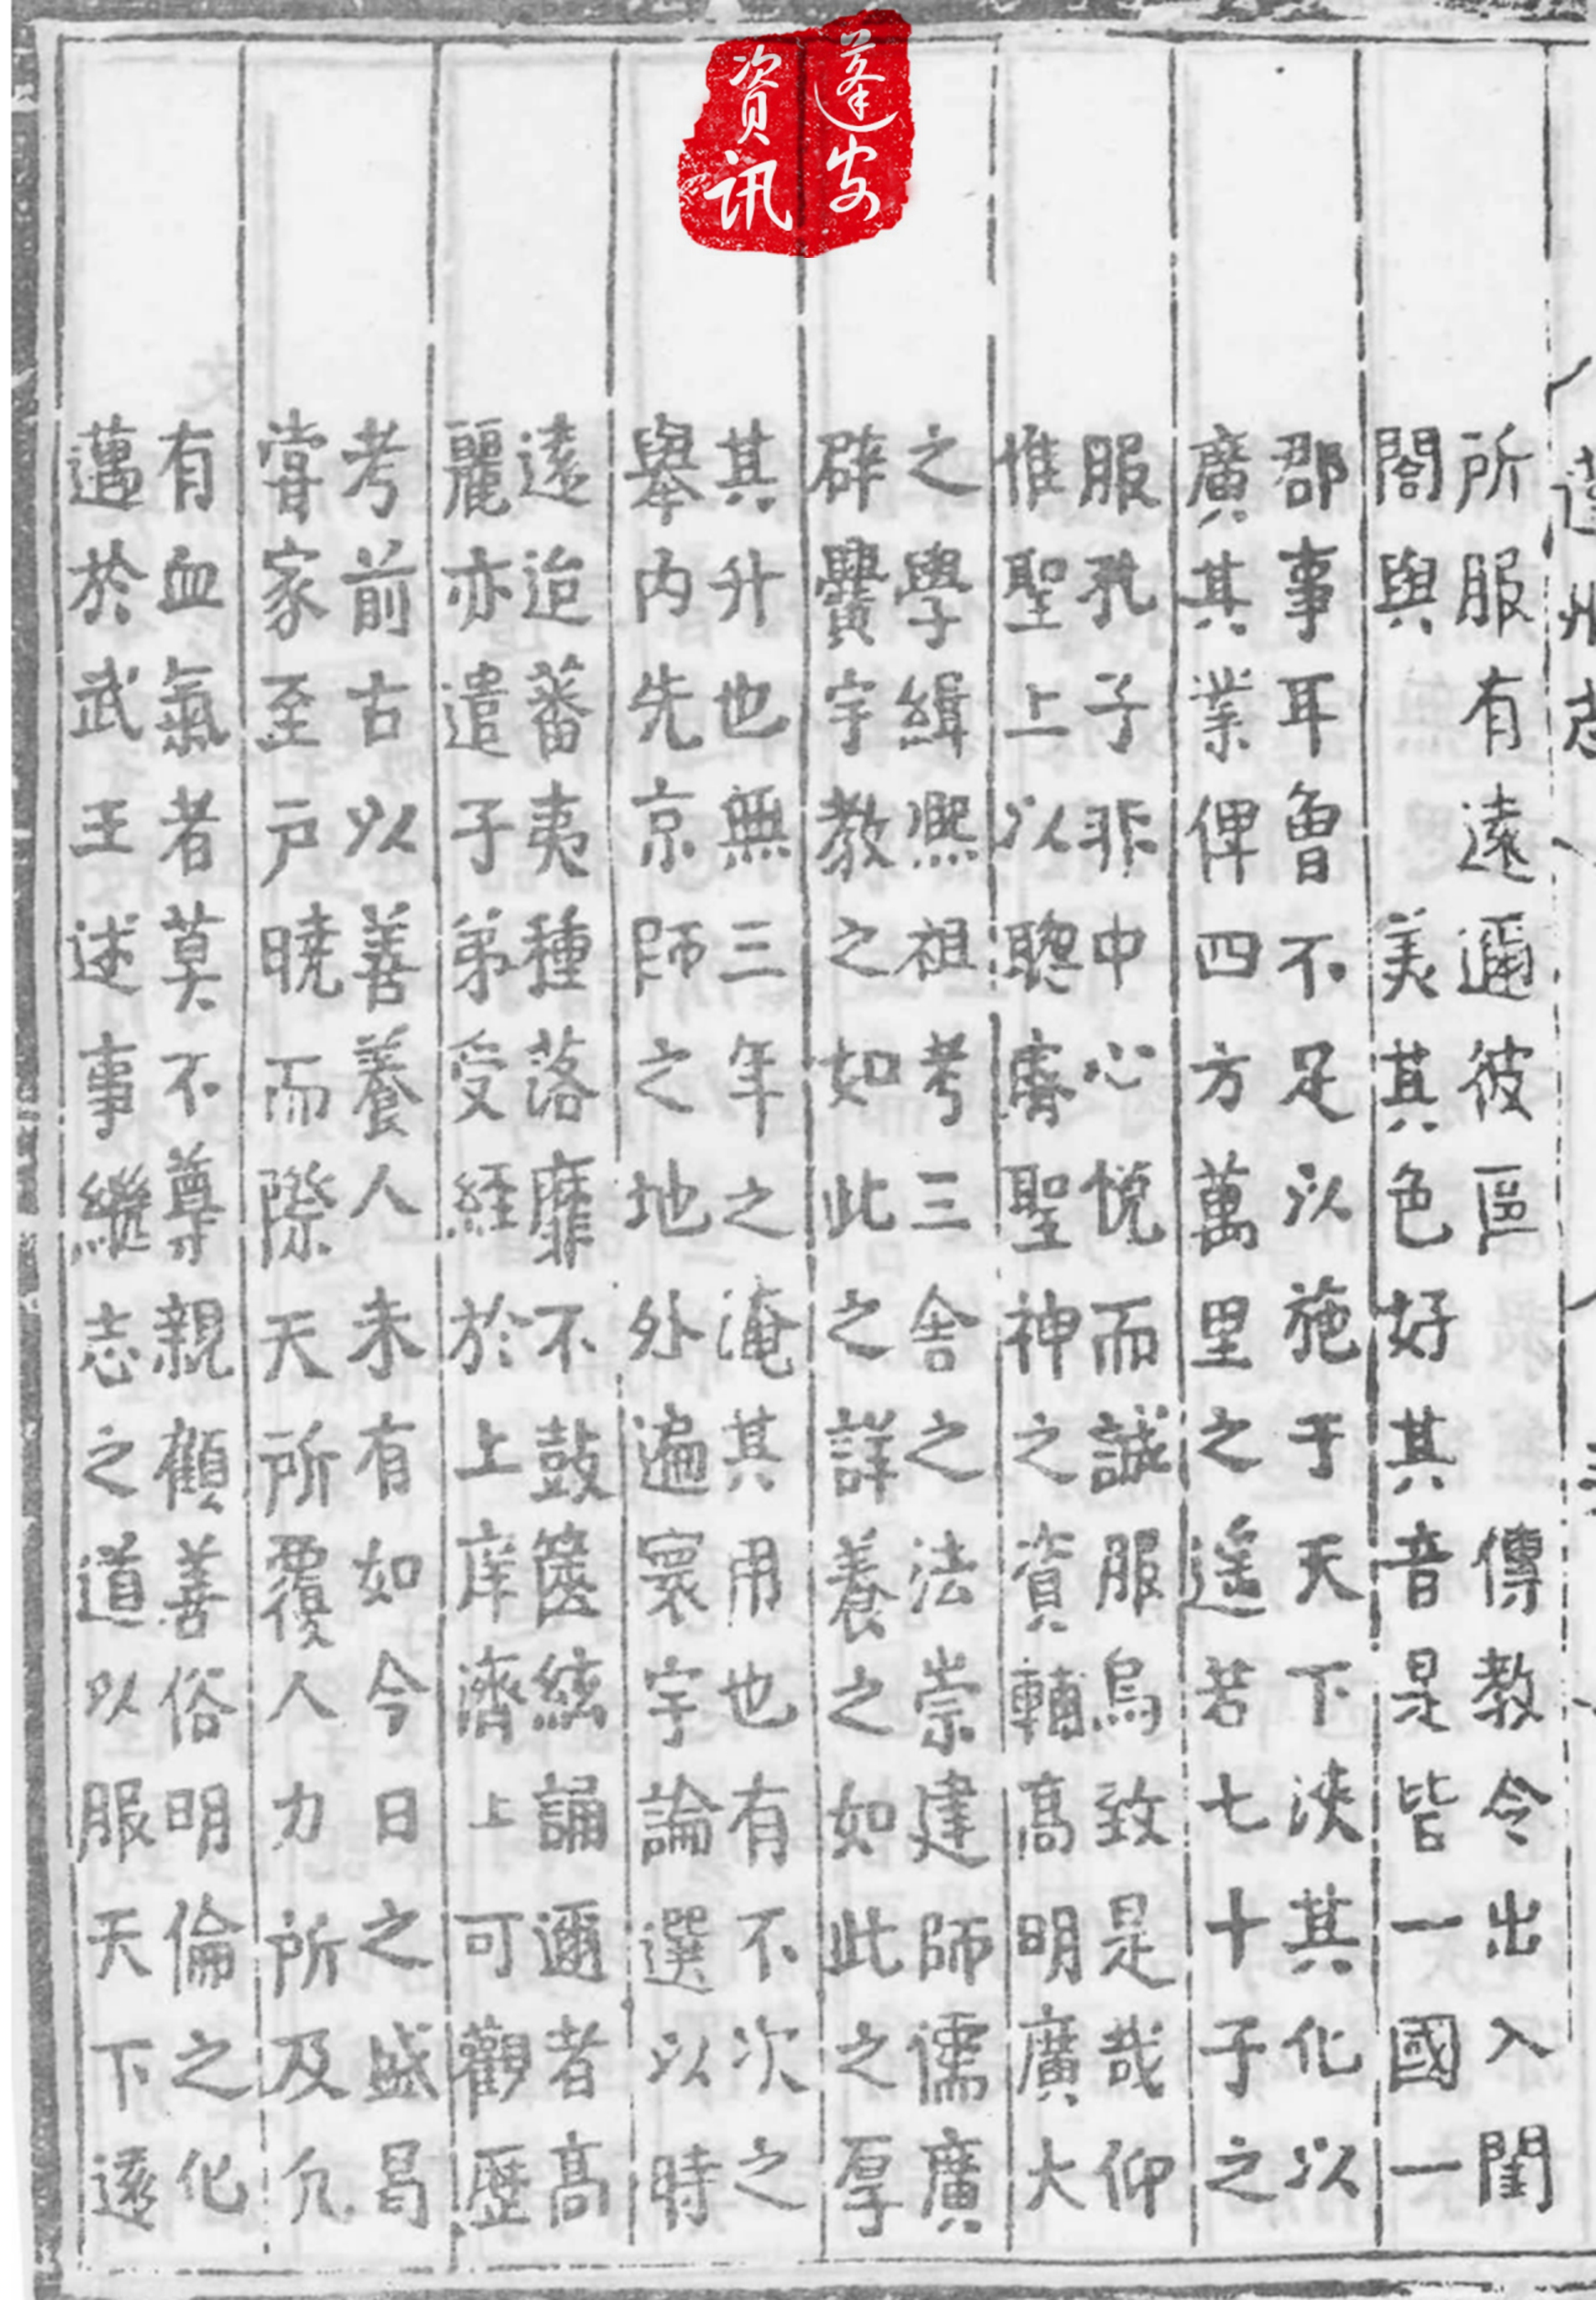 蓬安
资讯
蓬州志
所服有遠邇彼區　傳教令出入閨
閤與　美其色好其音是皆一國一
郡事耳魯不足以施于天下浹其化以
廣其業俾四方萬里之遥若七十子之
服孔子非中心悅而誠服烏致是哉仰
惟聖上以聰睿聖神之資輔高明廣大
之學緝熙祖考三舍之法崇建師儒廣
辟黌宇教之如此之詳養之如此之厚
其升也無三年之淹其用也有不次之
舉内先京師之地外遍寰宇論選以時
遠迨蕃夷種落靡不鼓篋絃誦邇者高
麗亦遣子弟受経於上庠濟上可觀歴
考前古以善養人未有如今日之盛曷
甞家至户曉而際天所覆人力所及凢
有血氣者莫不尊親顧善俗明倫之化
邁於武王述事繼志之道以服天下遠